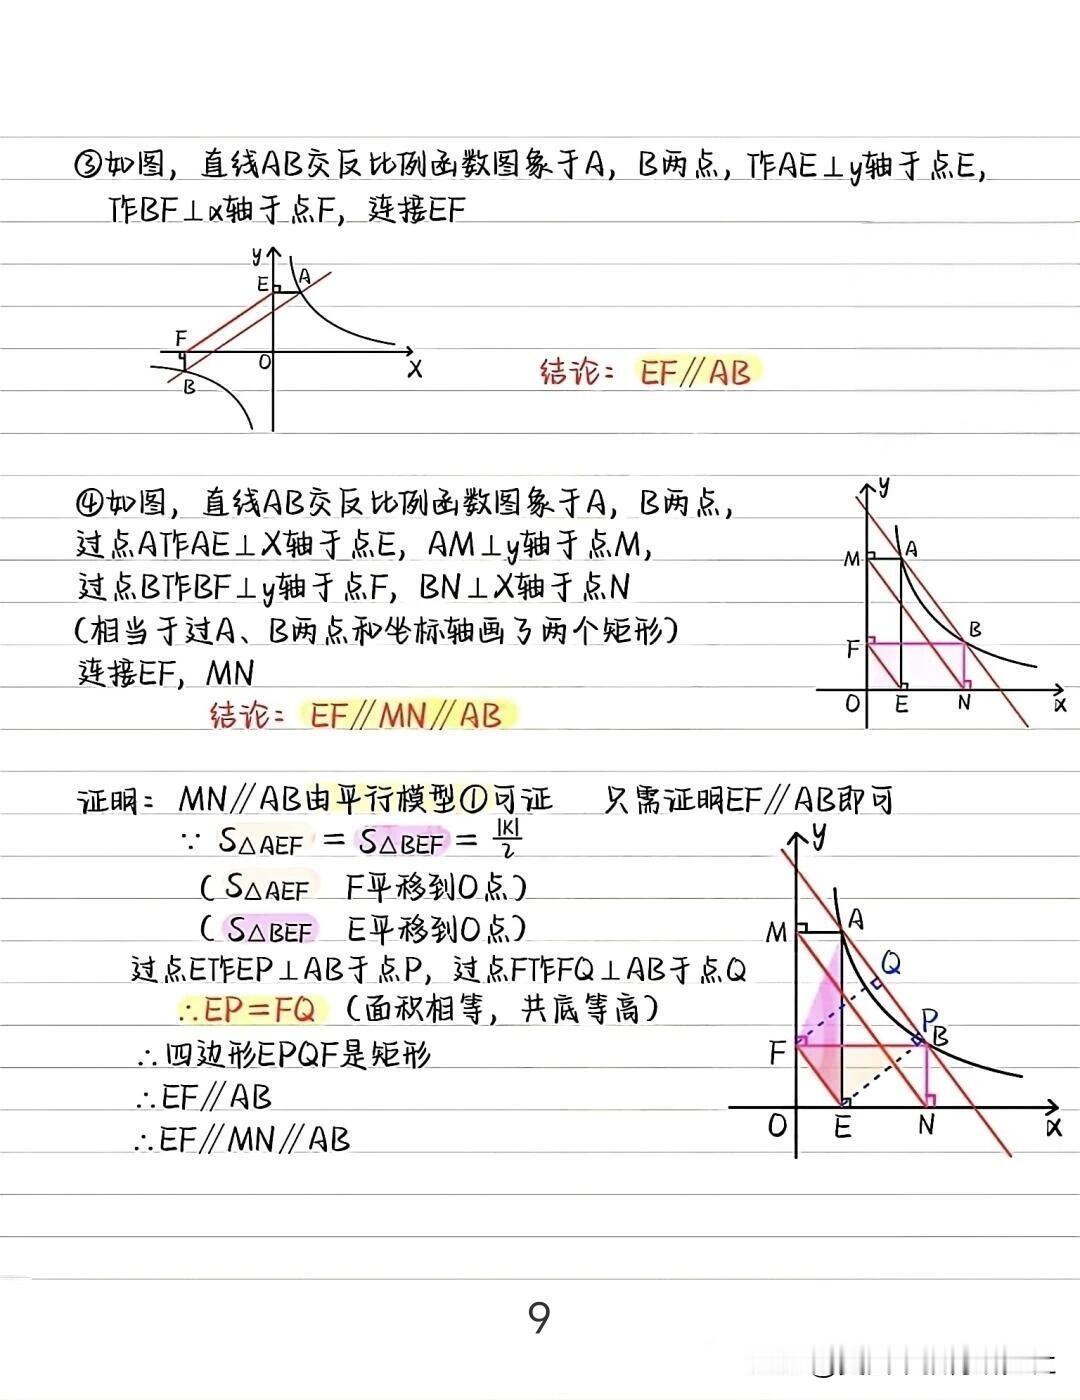 ③如图，直线AB交反比例函数图象于A，B两点，作AE⊥y轴于点E，
作BF⊥x轴于点F，连接EF
y
E
A
F
O
X
B
结论：EF∥AB
④如图，直线AB交反比例函数图象于A，B两点，
过点A作AE⊥X轴于点E，AM⊥y轴于点M，
过点B作BF⊥y轴于点F，BN⊥X轴于点N
（相当于过A、B两点和坐标轴画了两个矩形）
连接EF，MN
结论：EF∥MN∥AB
y
M
A
F
B
O
E
N
x
证明：MN∥AB由平行模型①可证 只需证明EF∥AB即可
∵ S△AEF = S△BEF = |K|/2
（S△AEF F平移到O点）
（S△BEF E平移到O点）
过点E作EP⊥AB于点P，过点F作FQ⊥AB于点Q
∴EP=FQ（面积相等，共底等高）
∴四边形EPQF是矩形
∴EF∥AB
∴EF∥MN∥AB
y
M
A
Q
P
F
B
O
E
N
x
9